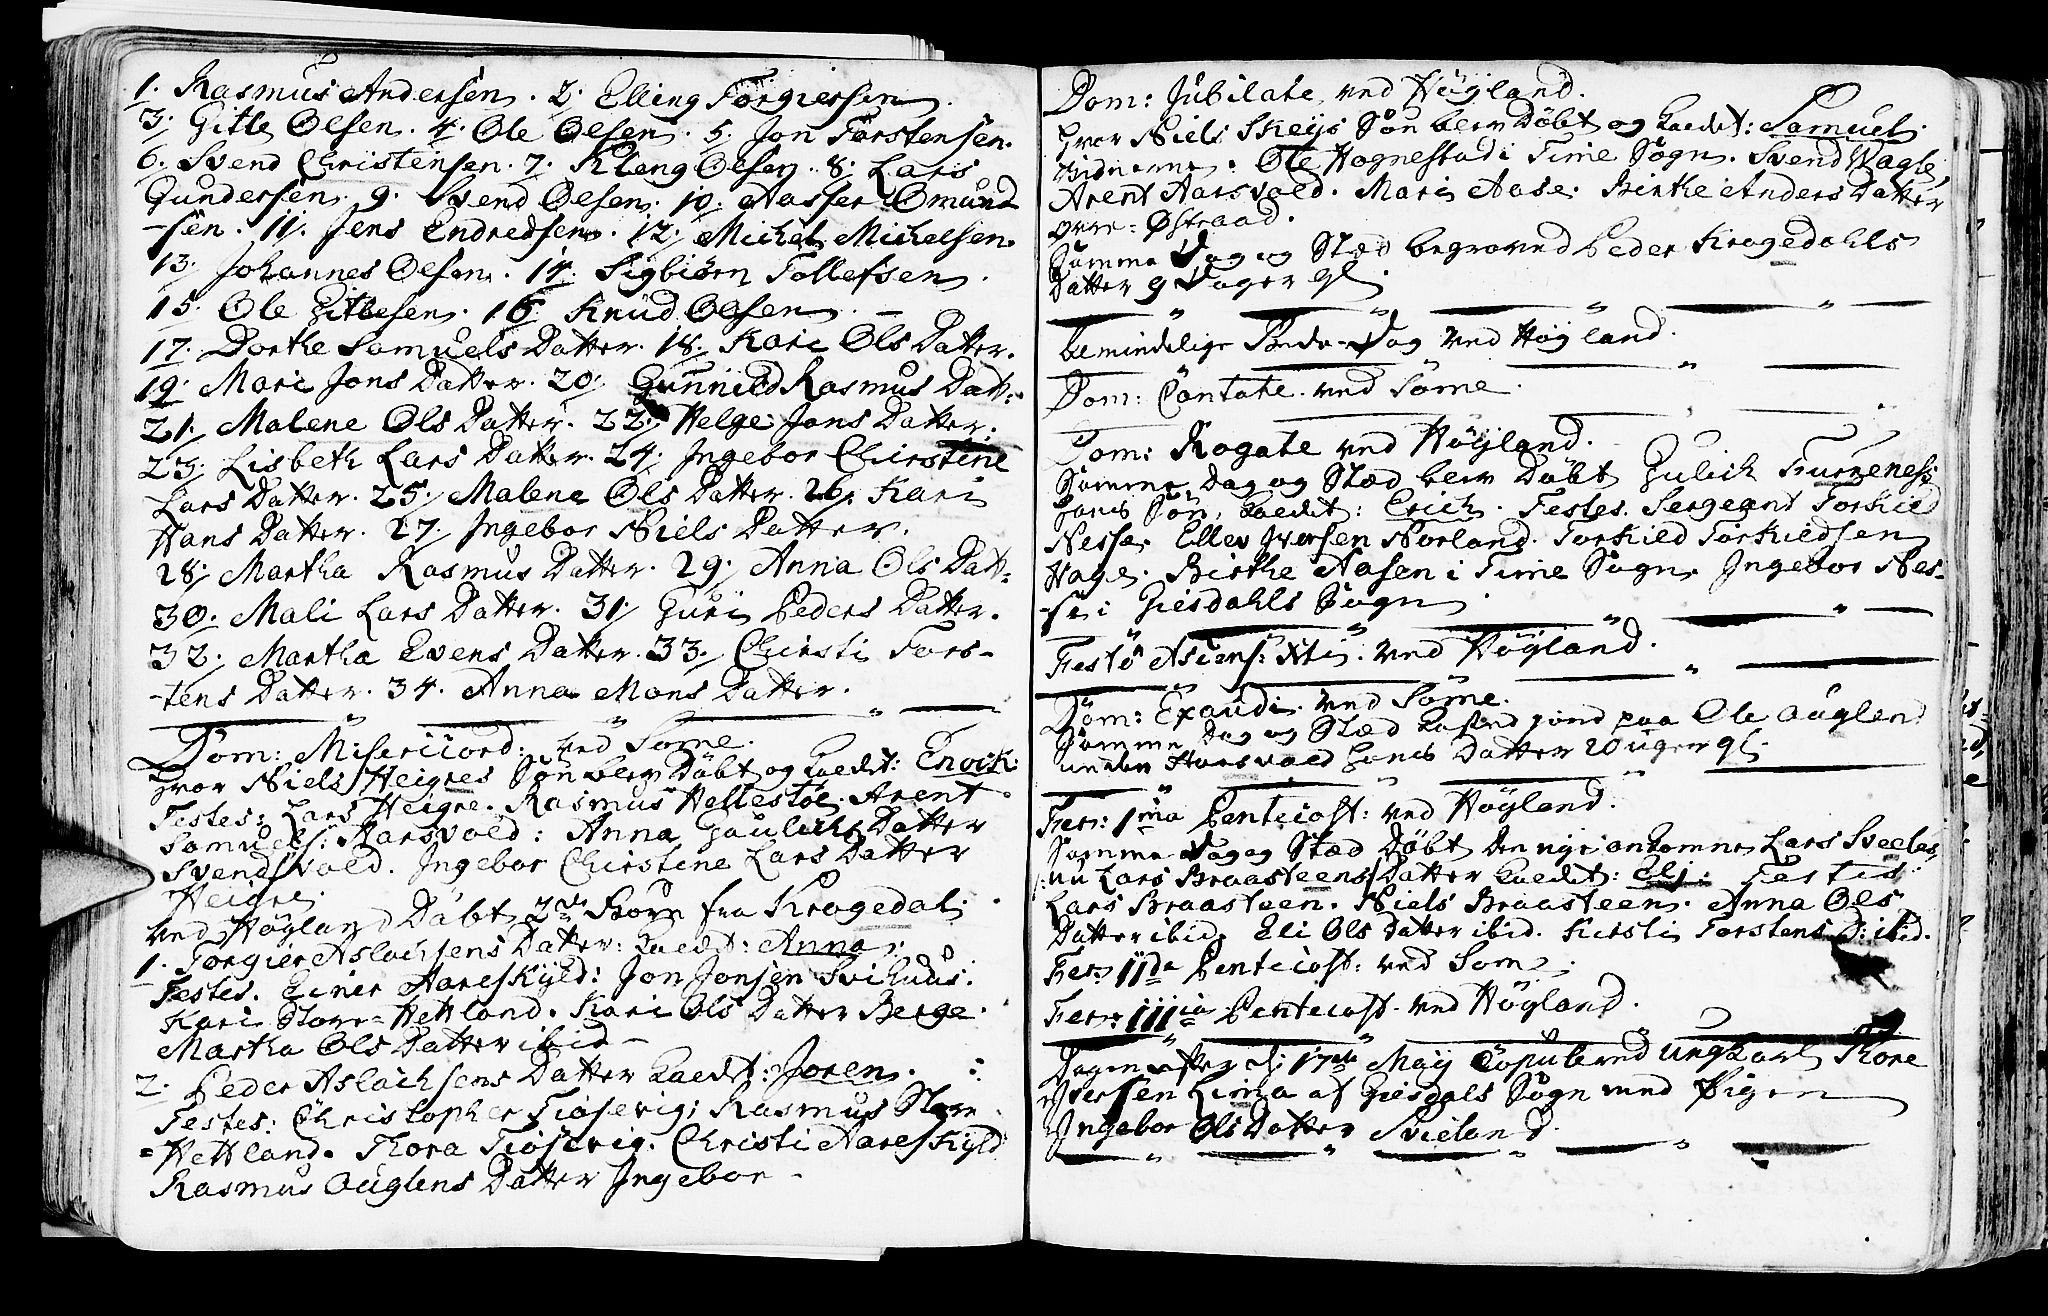 1. Rasmus Andersen. 2. Elling Torgiersen.
3. Gitle Olsen. 4. Ole Olsen. 5. Jon Torstensen.
6. Svend Christensen. 7. Kleng Olsen. 8. Lars
Gundersen. 9. Svend Olsen. 10. Aasser Omund
-sen. 11. Jens Endredsen. 12. Michel Michelsen.
13. Johannes Olsen. 14. Sigbiörn Tollefsen.
15. Ole Gitlesen. 16. Knud Olsen. –
17. Dorthe Samuels Datter. 18. Kari Ols Datter.
19. Mari Jons Datter. 20. Gunnild Rasmus Datt:
21. Malene Ols Datter. 22. Helge Jons Datter.
23. Lisbeth Lars Datter. 24. Ingebor Chirstine
Lars Datter. 25. Malene Ols Datter. 26. Kari
Hans Datter. 27. Ingebor Niels Datter.
28. Martha Rasmus Datter. 29. Anna Ols Datt:
30. Mali Lars Datter. 31. Guri Peders Datter.
32. Martha Evens Datter. 33. Chirsti Tors-
-tens Datter. 34. Anna Mons Datter.
Dom: Misericord: ved Some.
hvor Niels Heigres Søn blev Döbt og kaldt: Enoch:
Testes: Lars Heigre. Rasmus Hellestöe. Arent
Samuels: Aarsvold: Anna Gaulichs Datter
Svendsvold. Ingebor Chirstine Lars Datter
Heigre
ved Högland Döbt 2de Börn fra Kragedal.
1. Torgier Aslachsens Datter: kaldt: Anna.
Testes. Einer Aareskyld: Jon Jonsen Svihuus.
Kari Store-Hetland. Kari Ols Datter Berge.
Martha Ols Datter ibid –
2. Peder Aslachsens Datter kaldt: Joren.
Testes: Christopher Tiösevig; Rasmus Store
=Hettland. Thora Tiösevig. Christi Aareskyld
Rasmus Auglens Datter Ingebor –
Dom: Jubilate, ved Höyland.
hvor Niels Skeys Søn blev Döbt og kaldt: Samuel.
Vidnerne. Ole Hognestad i Time Sogn. Svend Vagle,
Arent Aarsvold. Mari Aase. Birthe Anders Datter
övre-Østraad.
Samme Dag og Stæd begraved Peder Kragedahls
Datter 9 Dager gl.
Almindelige Bede-Dag ved Höyland.
Dom: Cantate. ved Söme.
Dom: Rogate ved Höyland.
Samme Dag og Stæd blev Döbt Gulich Furreness:
hans Søn, kaldt: Erich. Testes. Sergeant Torkild
Nesse. Ellev Iversen Norland. Torkild Torkildsen
Hage. Birthe Aasen i Time Sogn. Ingebor Nes-
-se i Giesdahls Sogn.
Festö Ascens: Xti. ved Högland.
Dom: Exaudi. ved Söme.
Samme Dag og Stæd kasted jord paa Ole Auglend
Aarsvold hans Datter 20 uger gl.
Fer: 1ma Penticost: ved Höyland.
Samme Dag og Stæd Döbt Den nye ankomne Lars Sveles,
nu Lars Braasteens Datter kaldt: Eli: Testes
Lars Braasteen. Niels Braasteen. Anna Ols
Datter ibid. Eli Ols Datter ibid. Kirsti Torstens D: ibid.
Fer: IIda Penticost: ved Som.
Fer: IIIia Penticost. ved Högland.
Dagen efter d: 17de May Copulered ungkarl Thore
Iversen Lima af Giesdals Sogn med Pigen
Ingebor Ols Datter Svieland.